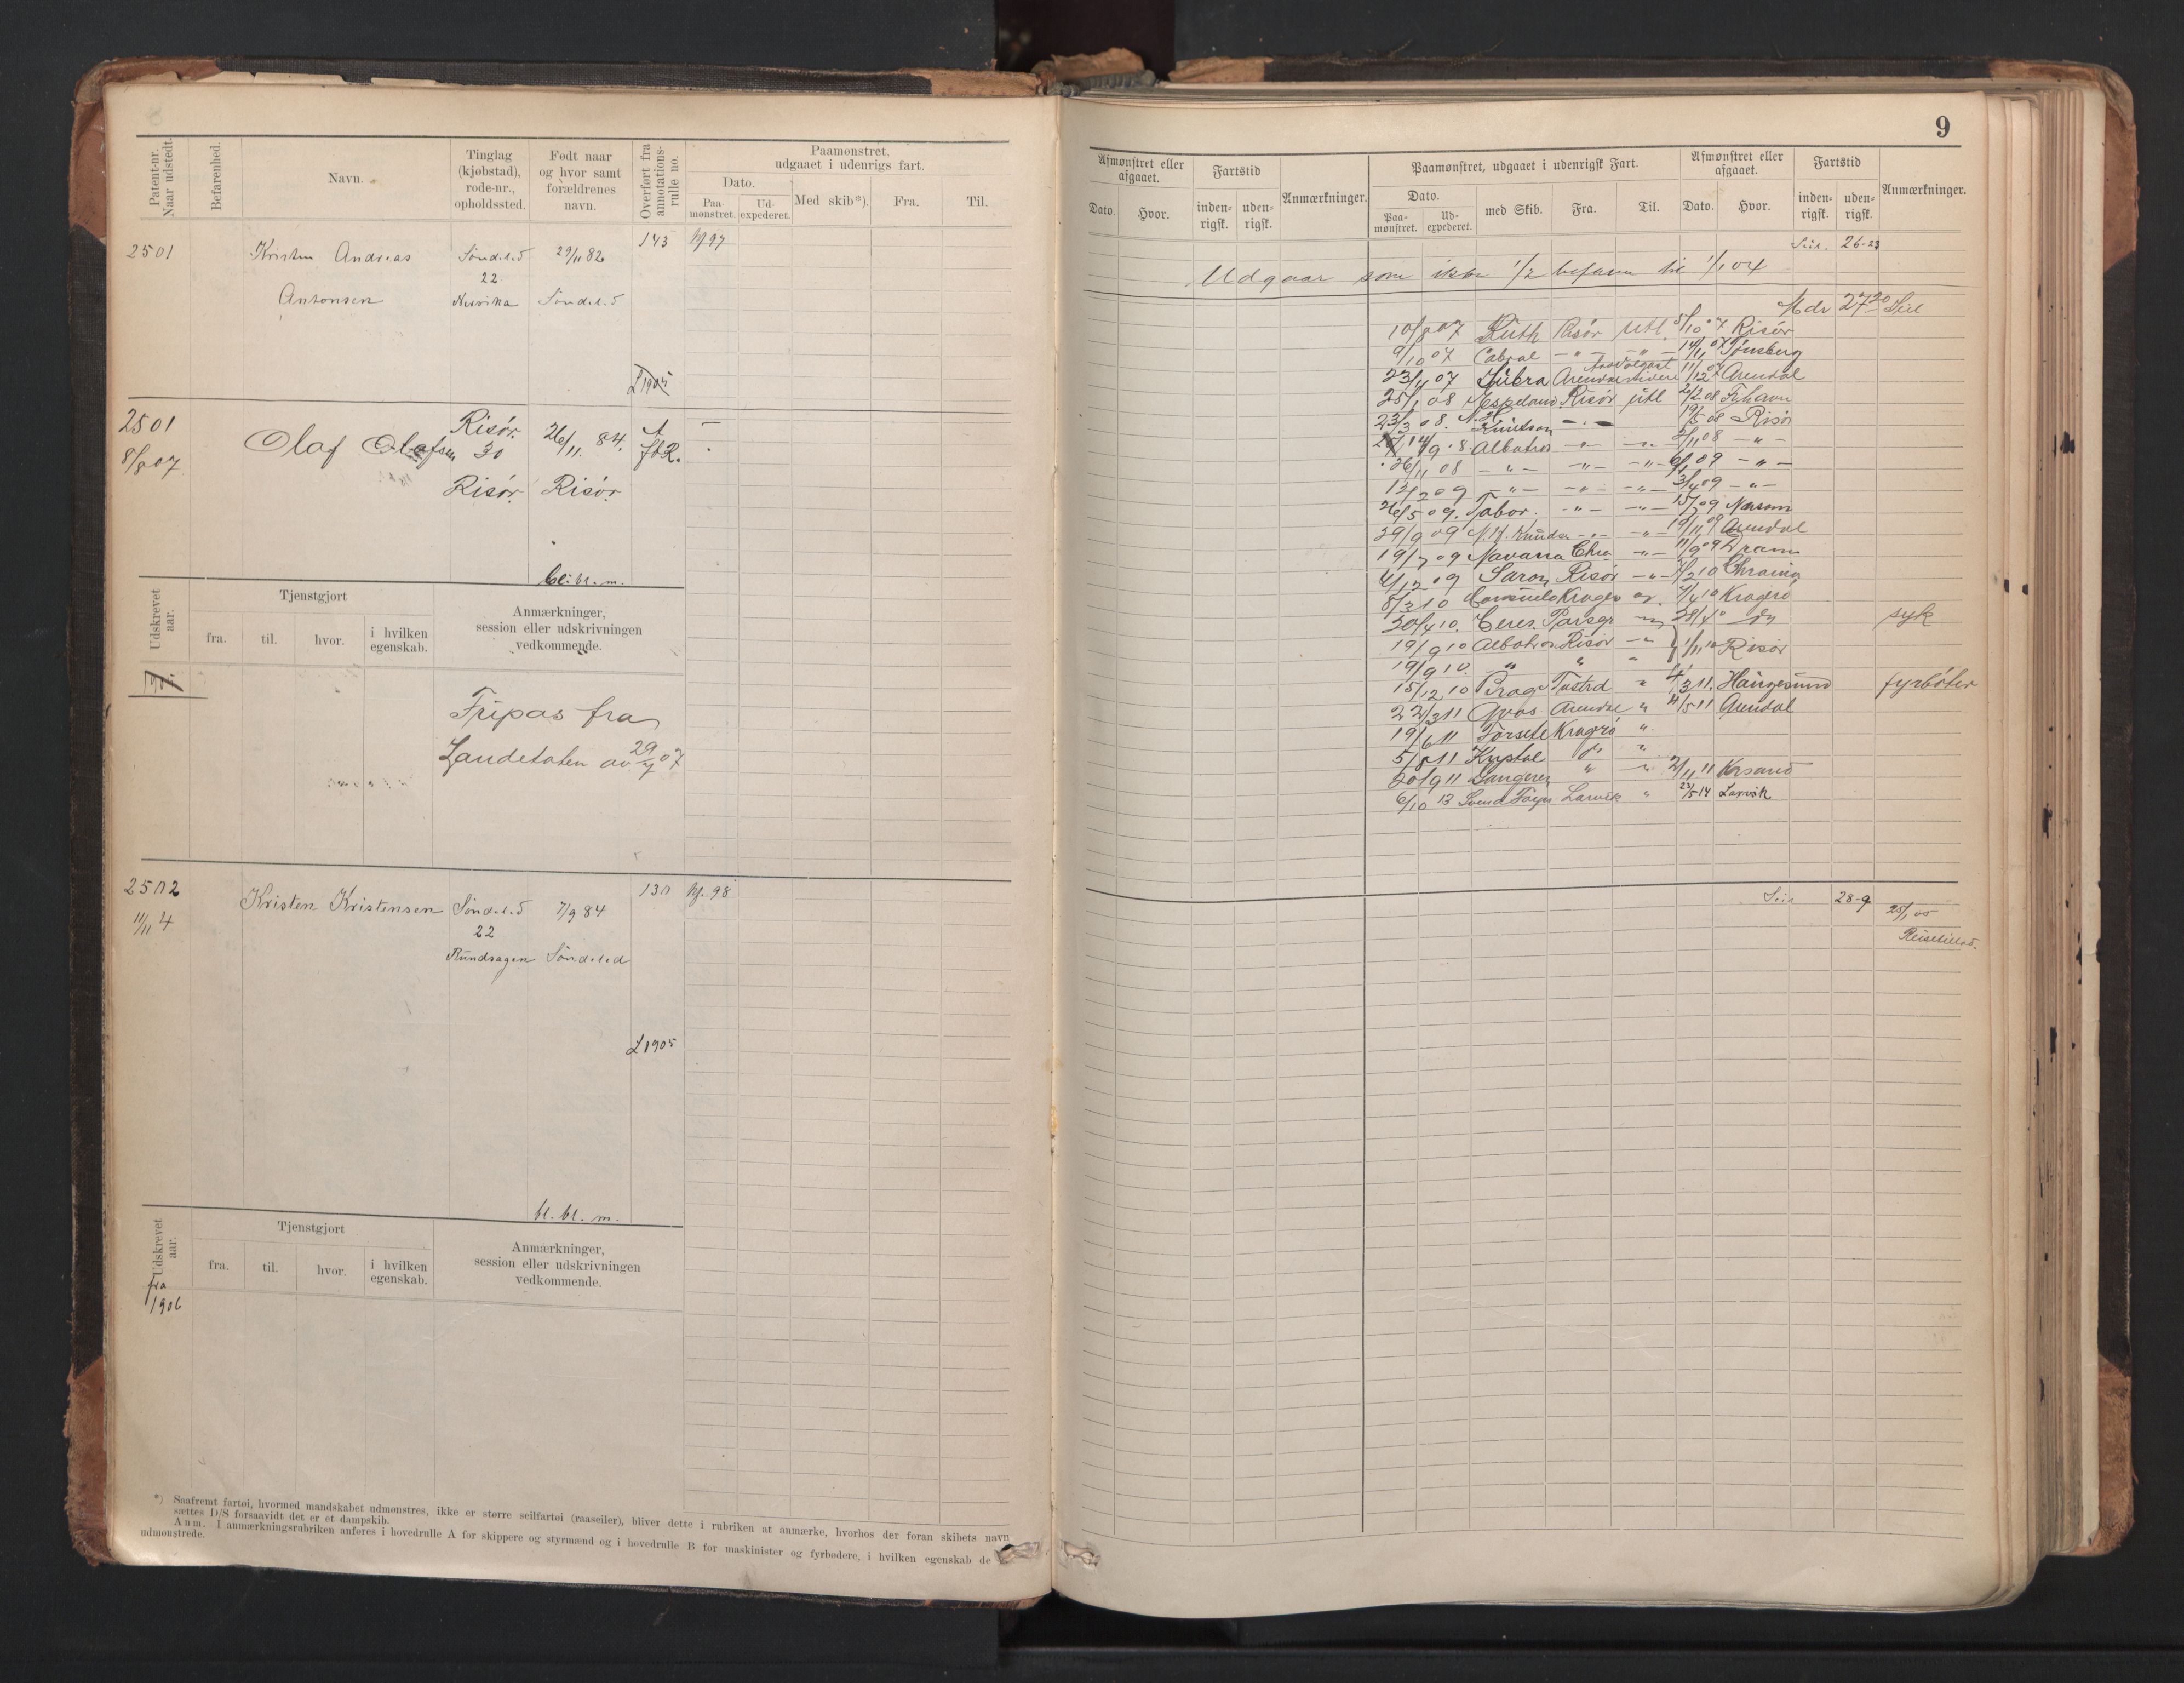 Patent-nr. Naar udstedt.
Befarenhed.
Navn.
Tinglag (kjøbstad), rode-nr., opholdssted.
Født naar og hvor samt forældrenes navn.
Overført fra annotations-rulle no.
Paamønstret, udgaaet i udenrigs fart.
Dato.
Paa-mønstret.
Ud-expederet.
Med skib*).
Fra.
Til.
2501 Kristen Andreas Søndeled 29/11 82 143 97
22
Antonsen Søndeled
L 1905
2501 Olaf Olafsen Risør. 26/11 84. A
8/8 07 30
Risør. Risør.
bl. m.
Udskrevet aar.
Tjenstgjort
fra. til. hvor. i hvilken egenskab.
Anmærkninger, session eller udskrivningen vedkommende.
Fripas fra
Landetaten av 29/7 07
2502 Kristen Kristensen Søndeled 7/9 84 130 98
11/11 4 22
Rundsagen Søndeled
L 1905
bl. bl. m.
Udskrevet aar.
Tjenstgjort
fra. til. hvor. i hvilken egenskab.
Anmærkninger, session eller udskrivningen vedkommende.
fra
1906
*) Saafremt fartøi, hvormed mandskabet udmønstres, ikke er større seilfartøi (raaseiler), bliver dette i rubriken at anmærke, hvorhos der foran skibets navn
sættes D/S forsaavidt det er et dampskib.
Anm. I anmærkningsrubriken anføres i hovedrulle A for skippere og styrmænd og i hovedrulle B for maskinister og fyrbødere, i hvilken egenskab de
udmønstrede.
9
Afmønstret eller afgaaet.
Dato Hvor.
Fartstid
inden-rigsk. uden-rigsk.
Anmærkninger.
Paamønstret, udgaaet i udenrigsk Fart.
Dato.
Paa-mønstret. Ud-expederet.
med Skib. Fra. Til.
Afmønstret eller afgaaet.
Dato. Hvor.
Fartstid
inden-rigsk. uden-rigsk.
Anmærkninger.
Seil. 26-23
Udgaar som ikke 1/2 befaren til 1/1 04
Mdr 27 20 Seil
10/8 07 Ruth Risør Utl 5/10 07 Risør
9/10 07 Cabral - " - - " - 14/11 07 Tønsberg
23/11 07 Arendal 11/12 07 Arendal
25/1 08 Espeland Risør utl 2/2 08 Frhavn
23/3 08. Knutson - " - 19/5 08 Risør
14/9 08 Albatros - " - - " - 2/11 08 - " -
26/11 08 - " - - " - - " - 6/1 09 - " -
12/2 09 - " - - " - - " - 3/4 09 - " -
26/5 09. Tabor. - " - - " - 15/7 09
29/9 09 - " - - " - 19/11 09 Arendal
19/7 09 Navarra Chra - " - 11/9 09 Dram
4/12 09 Saron Risør - " - 2/2 10 Chrania
8/3 10 Kragerø 7/4 10 Kragerø
20/4 10. Ceres. Porsgr 28/4 10 syk
19/9 10 Albatros Risør 1/11 10 Risør
19/9 10. " " "
15/12 10 Brage " 4/3 11. Haugesund fyrbøter
22/3 11 Arendal " 4/5 11 Arendal
19/6 11 Forsete Kragrø "
5/8 11 Krystal
20/9 11 " " 2/11 11 Krsand
6/10 13 Svend Foyn Larvik " 23/5 14 Larvik
Seil 28-9 25/1 05